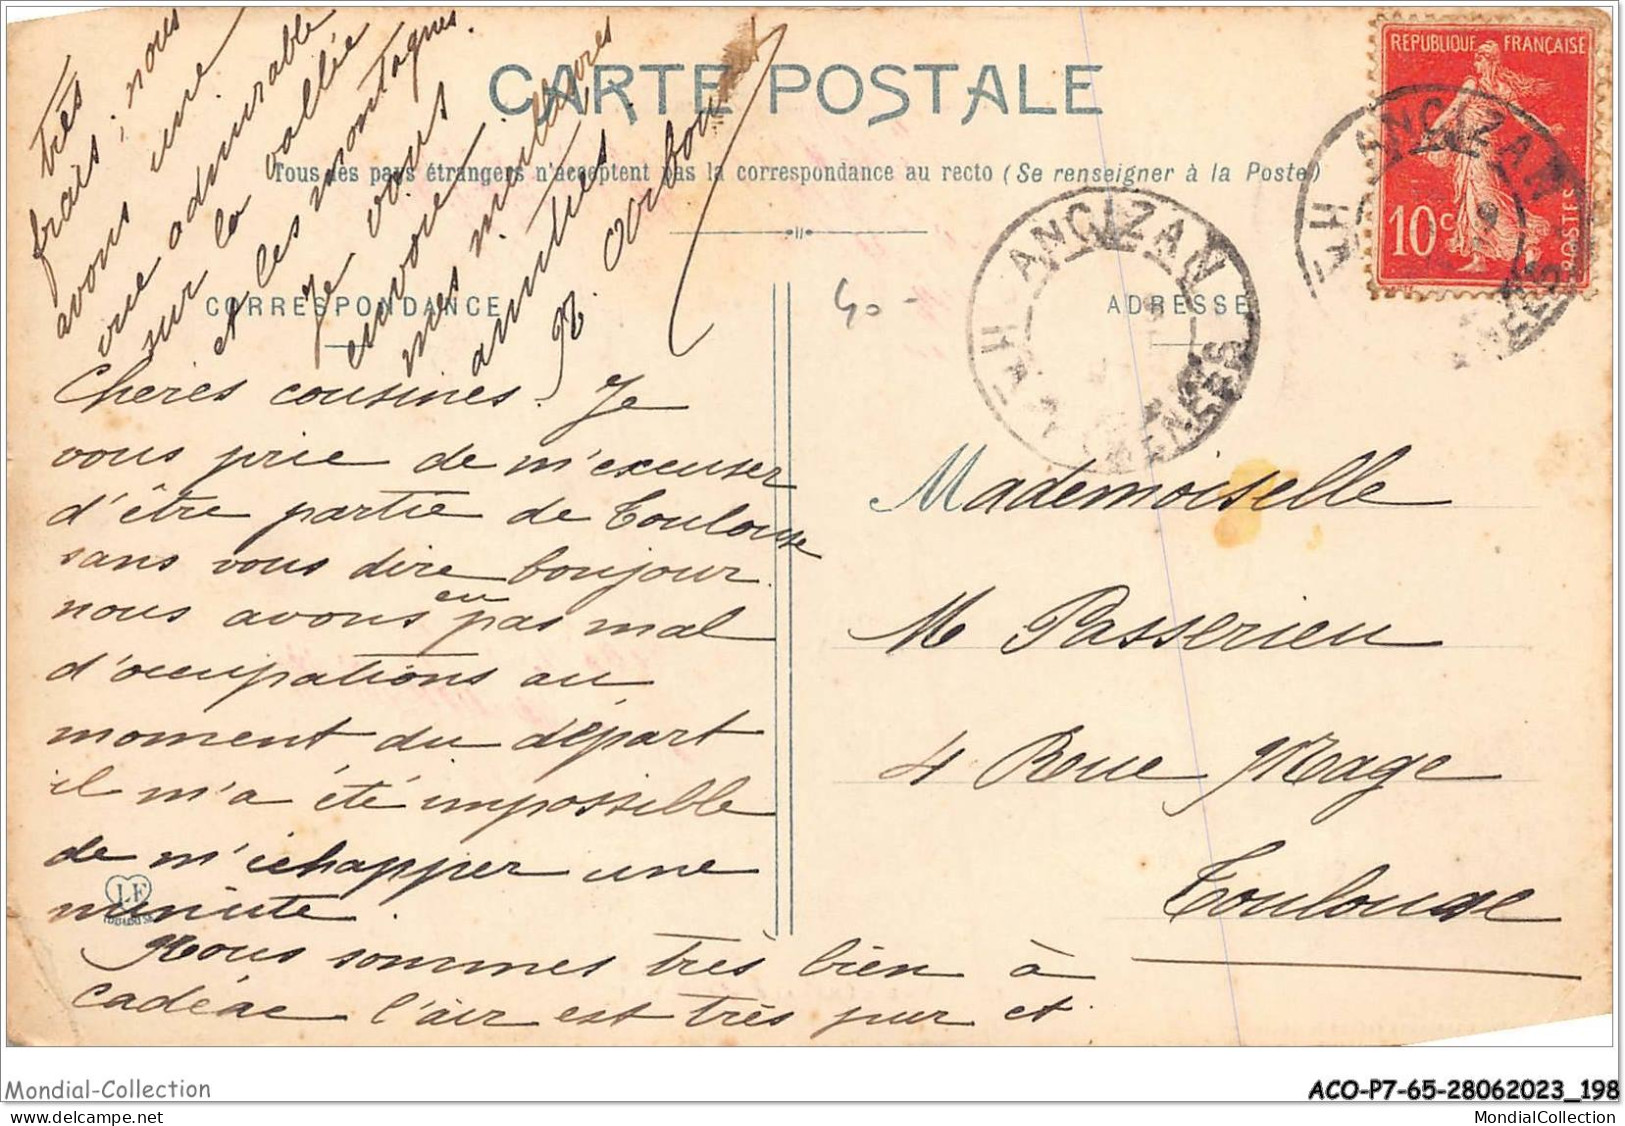 CARTE POSTALE
Tous les pays étrangers n'acceptent pas la correspondance au recto (Se renseigner à la Poste)
CORRESPONDANCE
ADRESSE
REPUBLIQUE FRANÇAISE
10 c
POSTES
ANCIZAN
HTES PYRENEES
ANCIZAN
40 -
Chères cousines. Je
vous prie de m'excuser
d'être partie de Toulouse
sans vous dire bonjour.
nous avons eu pas mal
d'occupations au
moment du départ
il m'a été impossible
de m'échapper une
minute.
Nous sommes très bien à
Cadéac l'air est très pur et
très
frais ; nous
avons une
vue admirable
sur la vallée
et les montagnes.
Je vous
envoie
mes meilleures
amitiés
Mademoiselle
M Passerieu
4 Rue Mage
Toulouse
LF
Mondial-Collection
ACO-P7-65-28062023_198
www.delcampe.net
MondialCollection